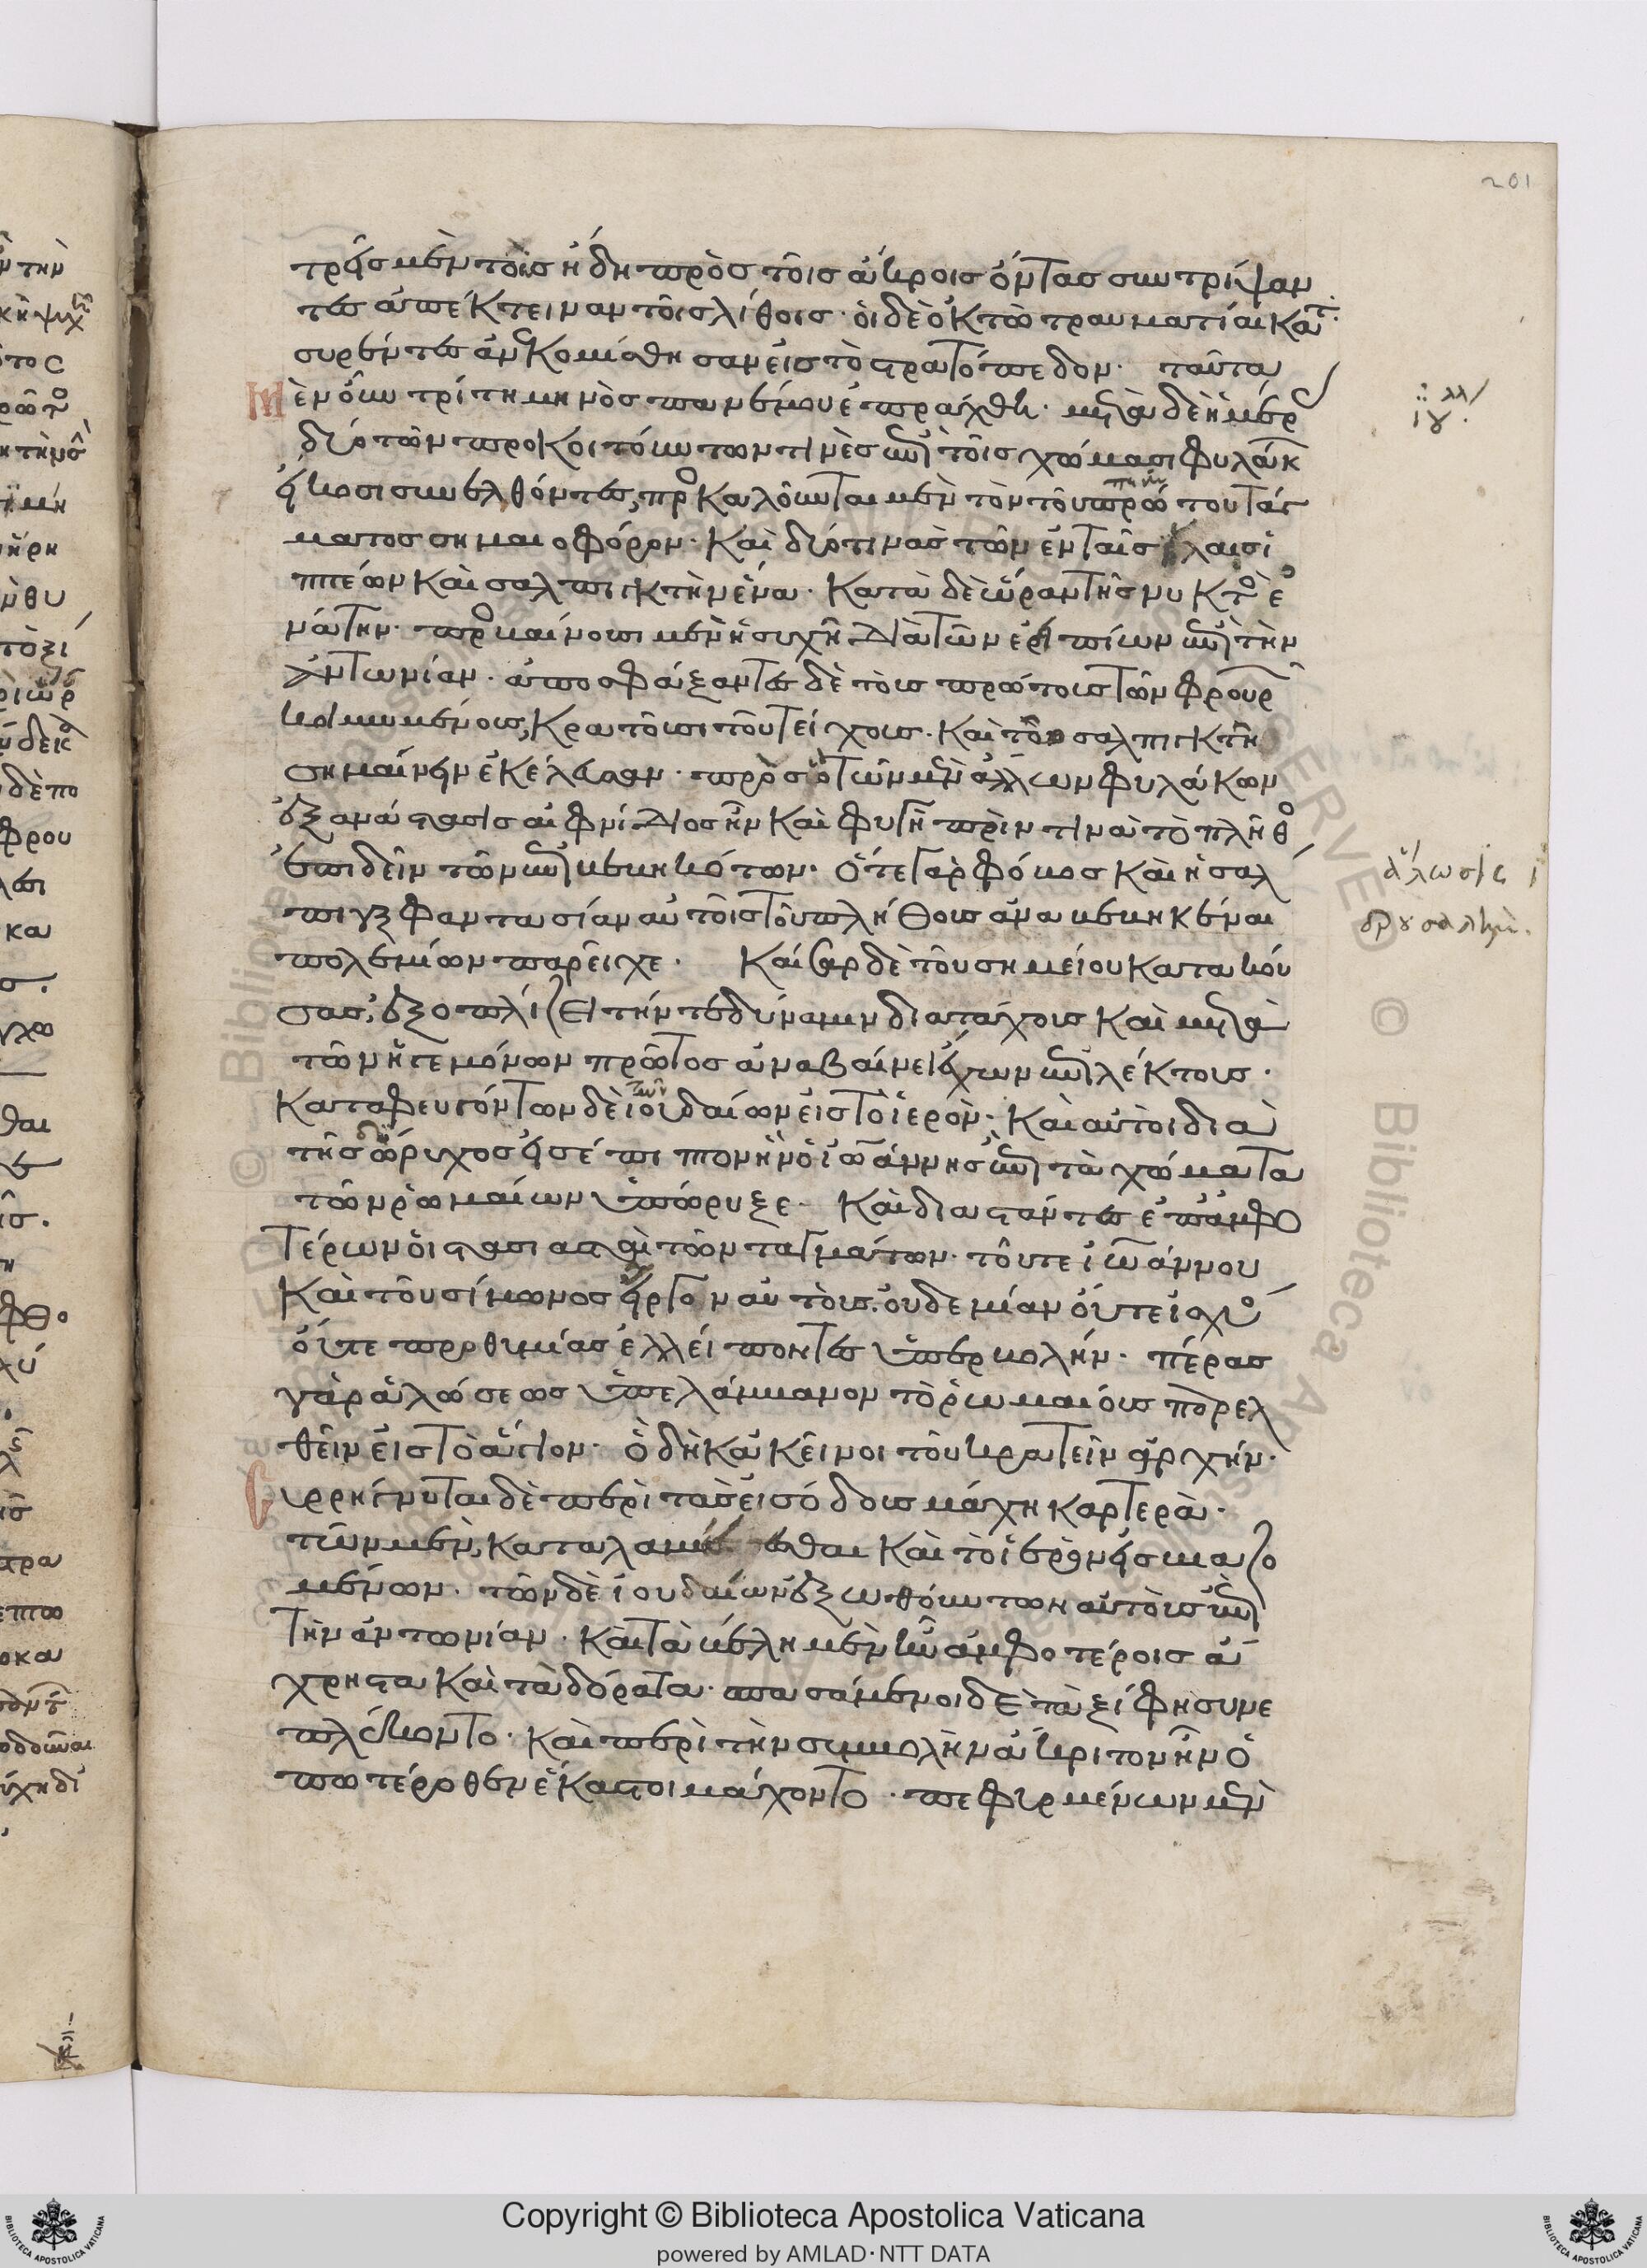 201
τρεῖς μὲν τοῖς ἤδη πρὸς τοῖς ἄκροις ὄντας συντρίψαν
τες ἀπέκτειναν τοῖς λίθοις· οἱ δὲ ὀκτὼ τραυματίαι κατ
συρέντες ἀνεκομίσθησαν εἰς τὸ στρατόπεδον· ταῦτα
μὲν οὖν τρίτῃ μηνὸς πανέμου ἐπράχθη· μετὰ δὲ ἡμέρ
δύο τῶν προκοιτούντων τινὲς ἐπὶ τοῖς χώμασι φυλάκ
εἴκοσι συνελθόντες, προκαλοῦνται μὲν τὸν τοῦ πρώτου τάγ
ματος σημαιοφόρον· καὶ δύο τινὰς τῶν ἐν ταῖς ἴλαις ἱ
ππέων καὶ σαλπικτὴν ἕνα· κατὰ δὲ ὥραν τῆς νυκτὸς ἐ
νάτην· προβαίνουσι μὲν ἡσυχῆ διὰ τῶν ἐρειπίων ἐπὶ τὴν
ἀντωνίαν· ἀποσφάξαντες δὲ τοὺς πρώτους τῶν φρουρ
κοιμωμένους, κρατοῦσι τοῦ τείχους· καὶ τῷ σαλπικτῇ
σημαίνειν ἐκέλευσαν· πρὸς ὃ τῶν μὲν ἄλλων φυλάκων
ἐξανάστασις αἰφνίδιος ἦν καὶ φυγὴ πρίν τινα τὸ πλῆθος
ἐπιδεῖν τῶν ἐπιβεβηκότων· ὅ τε γὰρ φόβος καὶ ἡ σάλ
πιγξ φαντασίαν αὐτοῖς τοῦ πλήθους ἀναβεβηκέναι
πολεμίων παρεῖχε· Καῖσαρ δὲ τοῦ σημείου κατακού
σας, ἐξοπλίζει τήν τε δύναμιν διὰ τάχους καὶ μετὰ
τῶν ἡγεμόνων πρῶτος ἀναβαίνει ἔχων ἐπιλέκτους·
καταφευγόντων δὲ ἰουδαίων εἰς τὸ ἱερόν· καὶ αὐτοὶ διὰ
τῆς διώρυχος εἰσέπιπτον ἣν ὁ ἰωάννης ἐπὶ τὰ χώματα
τῶν ῥωμαίων ὑπώρυξε· καὶ διαστάντες ἐπ' ἀμφο
τέρων οἱ στασιασταὶ τῶν ταγμάτων· τοῦ τε ἰωάννου
καὶ τοῦ σίμωνος εἶργον αὐτούς, οὐδεμίαν οὔτε ἰσχύος
οὔτε προθυμίας ἐλλείποντες ὑπερβολήν· πέρας
γὰρ ἁλώσεως ὑπελάμβανον τὸ ῥωμαίους παρελ
θεῖν εἰς τὸ ἅγιον· ὃ δὴ κἀκεῖνοι τοῦ κρατεῖν ἀρχήν·
συρρήγνυται δὲ περὶ τὰς εἰσόδους μάχη καρτερά·
τῶν μὲν, καταλαβέσθαι καὶ τὸ ἱερὸν εἰσβιαζο
μένων· τῶν δὲ ἰουδαίων ἐξωθούντων αὐτοὺς ἐπὶ
τὴν ἀντωνίαν· καὶ τὰ βέλη μὲν ἦν ἀμφοτέροις ἄ
χρηστα καὶ τὰ δόρατα· σπασάμενοι δὲ τὰ ξίφη συνε
πλέκοντο· καὶ περὶ τὴν συμβολὴν ἄκριτον ἦν ὁ
ποτέρωθεν ἕκαστοι μάχοιντο· πεφυρμένων μὲν
ἅλωσις ἱ
ερουσαλήμ